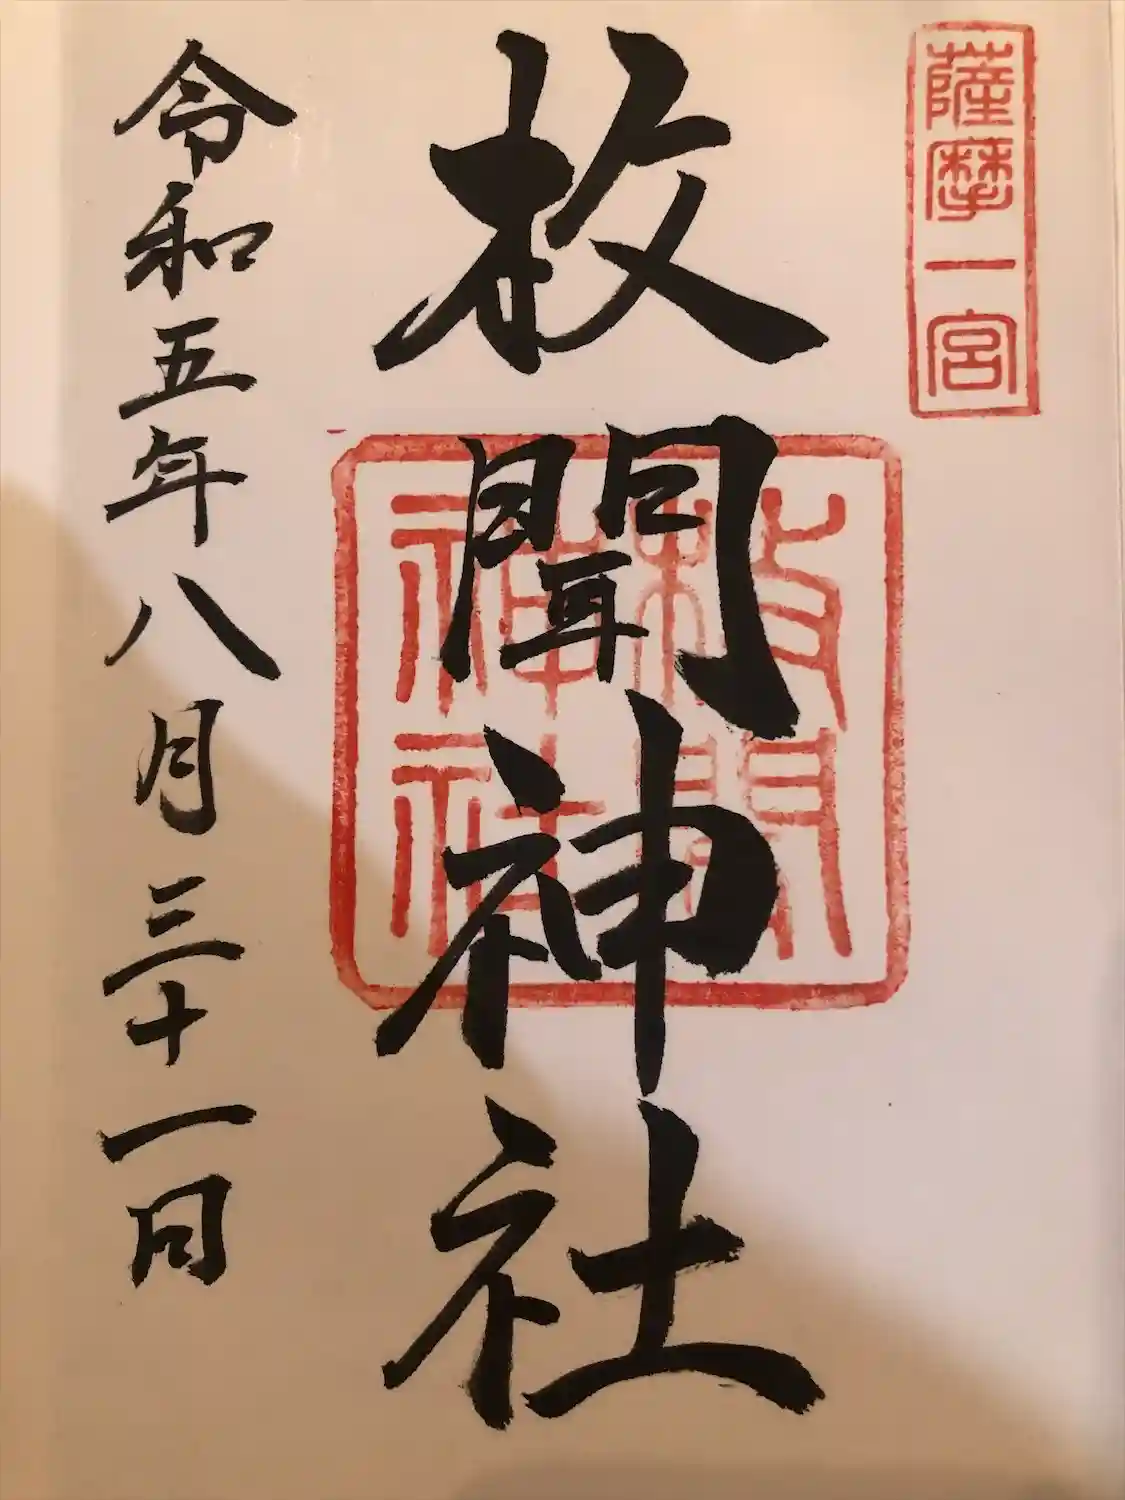 薩摩一宮
枚聞神社
枚聞神社
令和五年八月三十一日